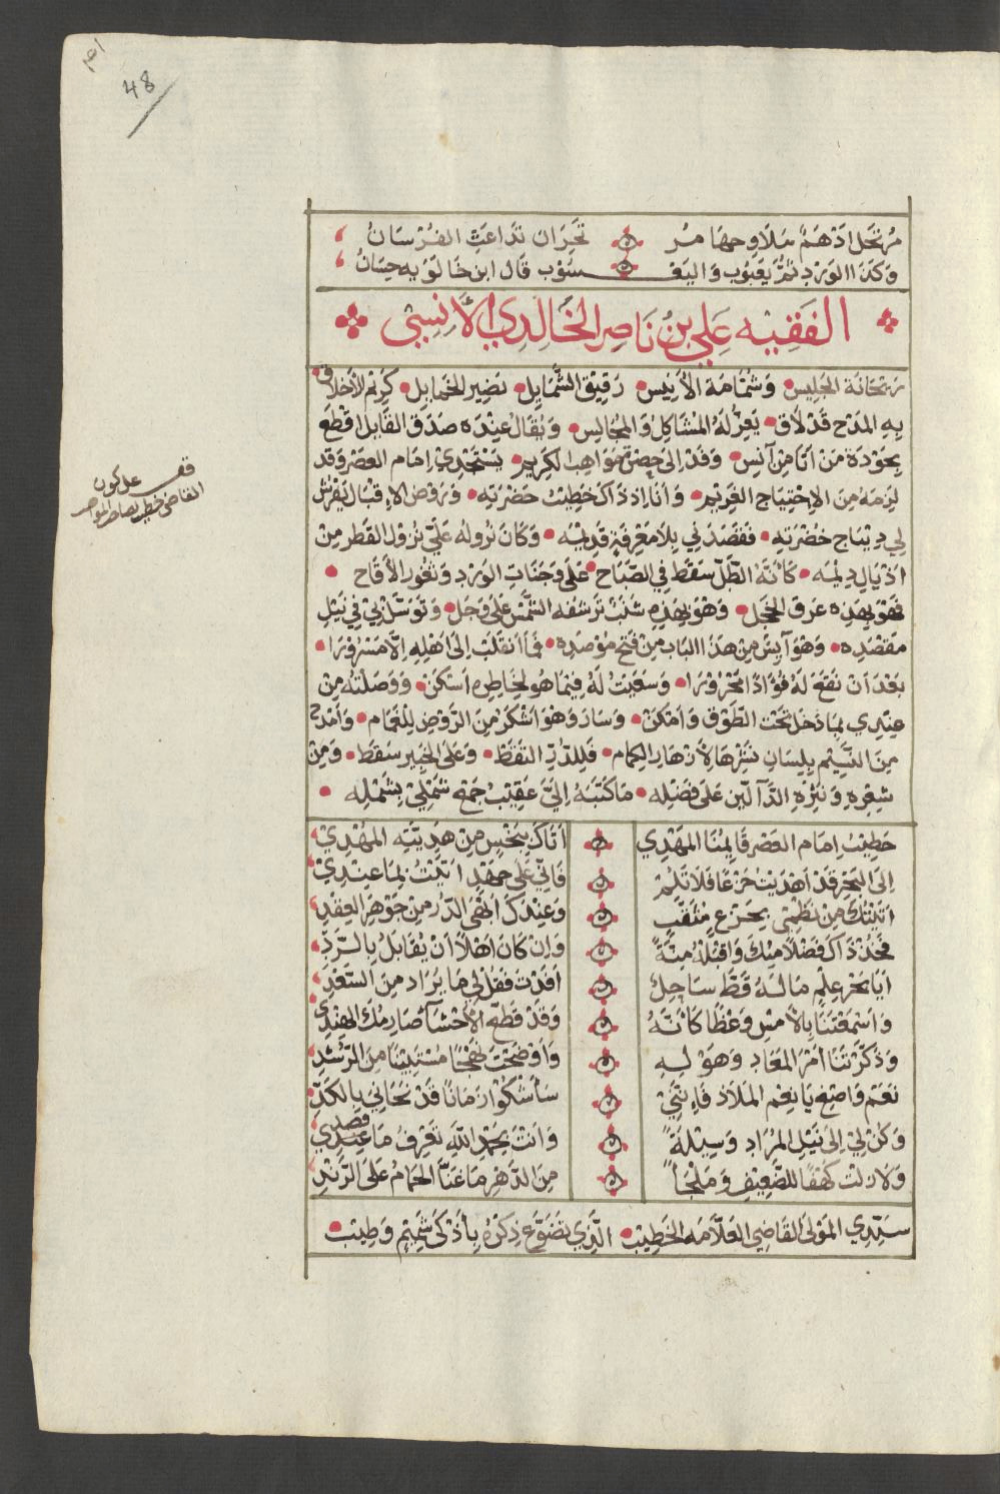 48
مرتجل ادهم سلاوحها مر تجران تداعت الفرسان
وكذا الورد ثم يعقوب واليعـ ـسوب قال ابن خالويه حسان
الفقيه علي بن ناصر الخالدي الأنسي
ريحانة الجليس وشمامة الأنيس رقيق الشمايل نضير الخمايل كريم الأخلاق
به المدح قد لاق يعز له المشاكل والمجالس ويقال عنده صدق القايل اقطع
بجودة من اتا من آنس وفد إلى حضرة مواهب الكريم يستجدي إمام العصر وقد
لزمه من الاحتياج الغريم وأنا إذ ذاك خطيب حضرته وروض الإقبال يفرش
لي ديباج خضرته فقصدني بلا معرفة قديمه وكان نزوله علي نزول القطر من
اذيال ديمه كانه الطل سقط في الصباح على وجنات الورد وثغور الأقاح
فهو بهذه عرق الخجل وهو بهذه شنب ترشفه الشمس على وجل وتوسل بي في نيل
مقصده وهو آيس من هذا الباب من فتح موصده فما انقلب إلى اهله إلا مسرورا
بعد ان نقع له فؤادا محرورا وسعيت له فيما هو لخاطره اسكن ووصلته من
عندي بما دخل تحت الطوق وامكن وسار وهو اشكر من الروض للغمام وامدح
من النسيم بلسان نشرها لأزهار الكمام فللدر التقط وعلى الخبير سقط ومن
شعره ونثره الدالين على فضله ما كتبه إلي عقيب جمع شملي بشمله
خطيب إمام العصر قايمنا المهدي اتاك بخيس من هديته المهدي
إلى البحر قد اهديت جزعا فلا تلم فاني على جهد اتيت بما عندي
اتيتك من نظمي بجزع مثقب وعندك ابهى الدر من جوهر العقد
فخذ ذاك فضلا منك واقبله منة وان كان اهلا ان يقابل بالرد
ايا بحر علم ما له قط ساحل افدت فقل لي ما يراد من السعد
واسمعتنا بالأمس وعظا كانه وقد قطع الأحشآ صارمك الهندي
وذكرتنا أمر المعاد وهوله واوضحت نهجا مستبينا من الرشد
نعم واصغ يا نعم الملاذ فإنني سأشكوا زمانا قد نحاني بالكد
وكن لي إلى نيل المراد وسيلة وانت بحمد الله تعرف ما عندي
قصدي
ولا زلت كهفا للضعيف وملجأ من الدهر ما غنا الحمام على الرند
سيدي المولى القاضي العلامه الخطيب الذي تضوع ذكره بأذكى شميم وطيب